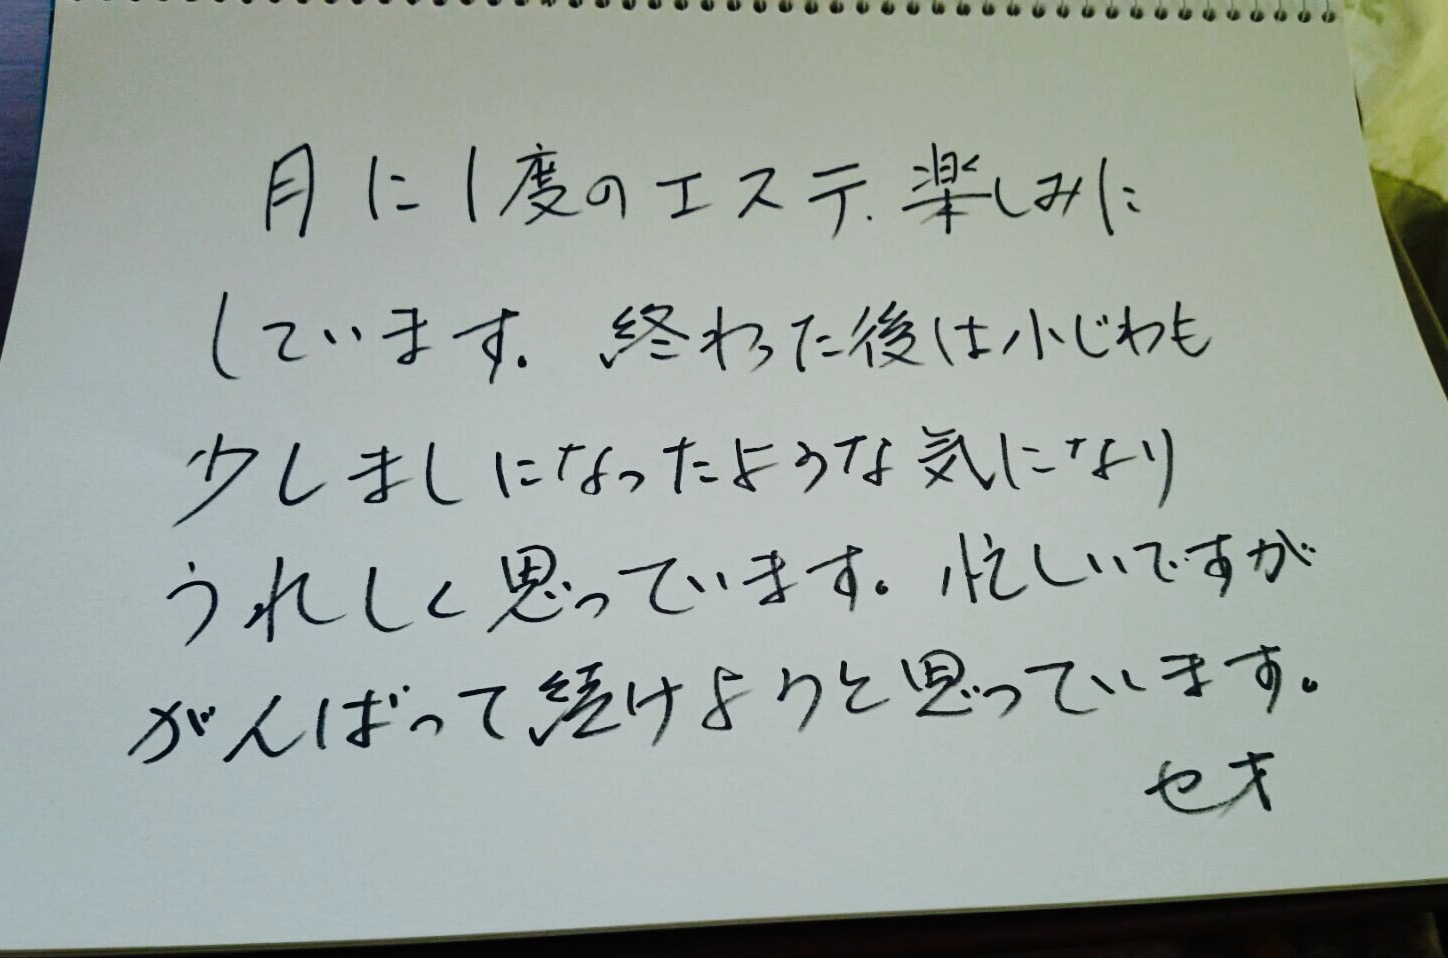 月に1度のエステ、楽しみに
しています。終わった後は小じわも
少しましになったような気になり
うれしく思っています。忙しいですが
がんばって続けようと思っています。
セオ